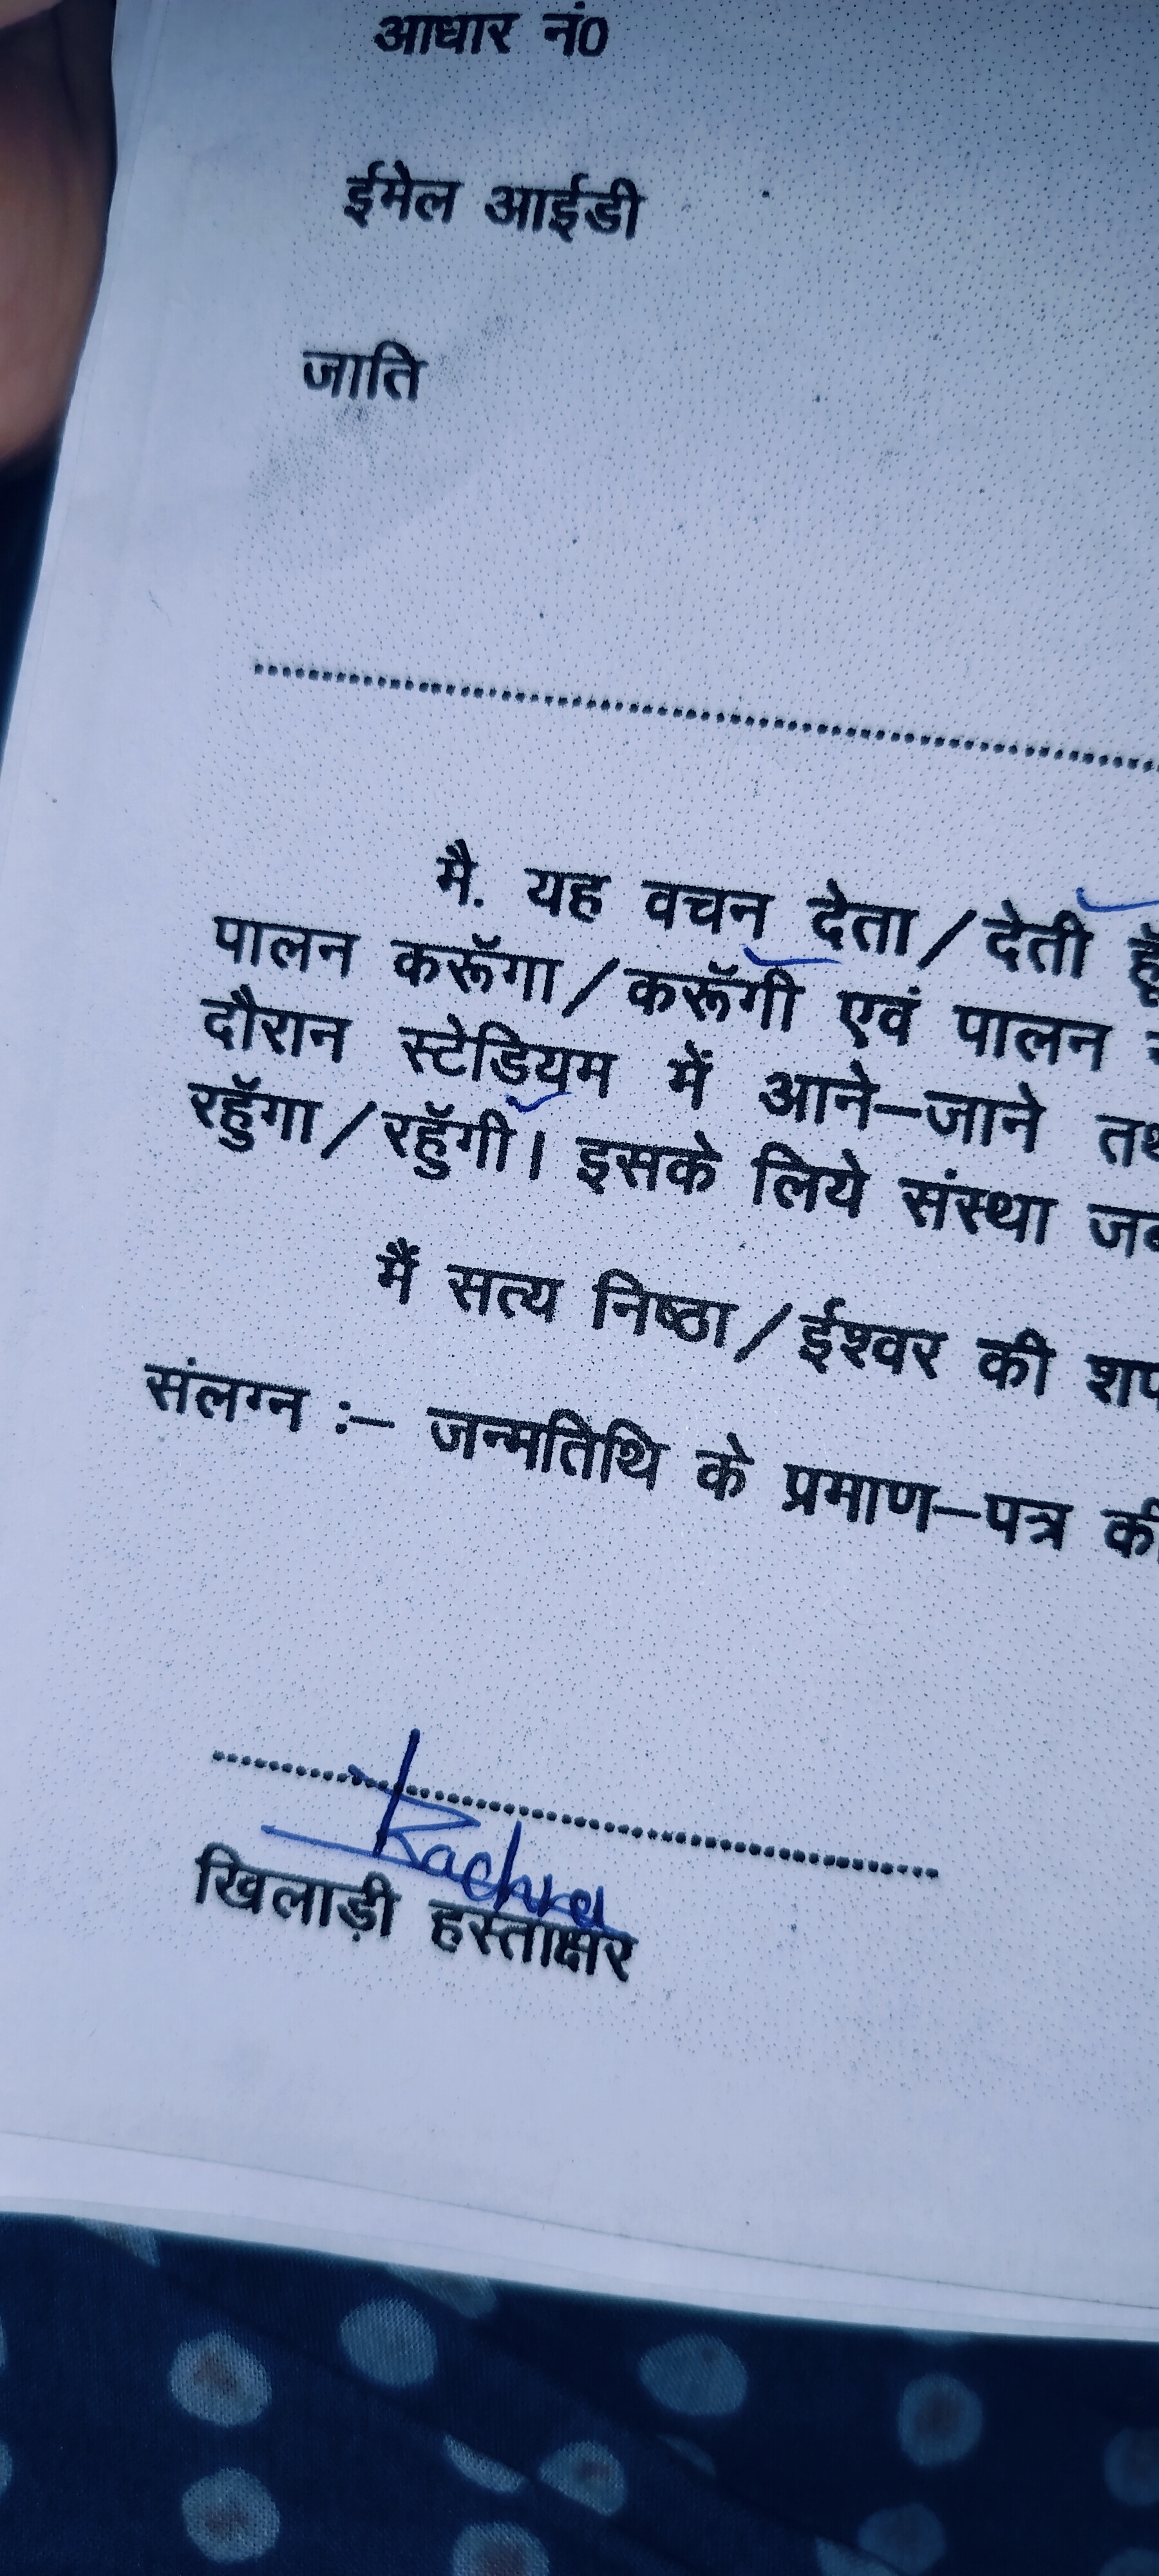 आधार नं0
ईमेल आईडी
जाति
मै. यह वचन देता/देती हूॅ
पालन करूॅगा/करूॅगी एवं पालन
दौरान स्टेडियम में आने–जाने
रहूॅगा/रहूॅगी। इसके लिये संस्था
मैं सत्य निष्ठा/ईश्वर की
संलग्न :– जन्मतिथि के प्रमाण–पत्र
खिलाड़ी हस्ताक्षर